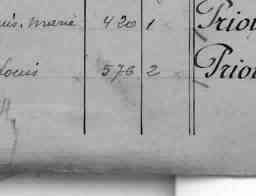 uis. marie 420 1 Priou
Louis 576 2 Priou